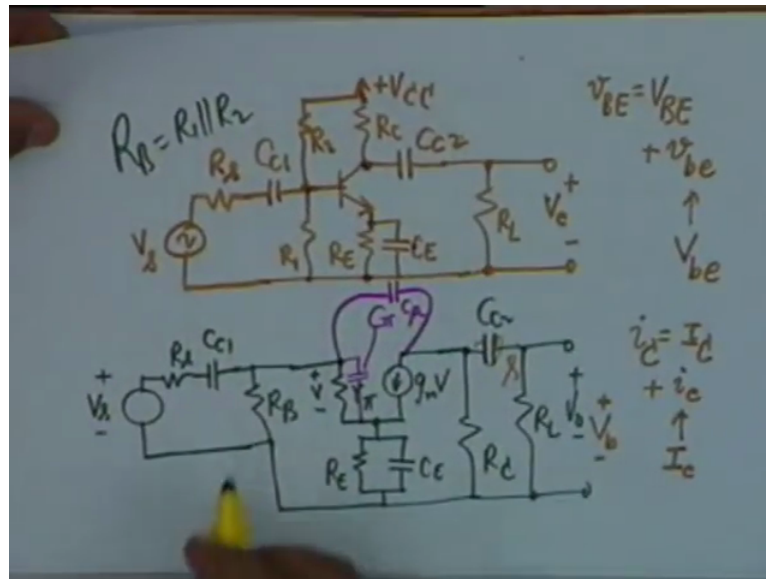 +VCC
RB = R1 || R2
R2
RC
CC2
Rs
CC1
Vs
R1
RE
CE
RL
+
Vo
-
vBE = VBE
+ vbe
↑
Vbe
Cμ
Cπ
CC2
Rs
CC1
+
Vs
-
RB
+
V
-
rπ
gmV
RE
CE
RC
RL
+
Vo
-
+
Vo
-
iC = IC
+ ic
↑
Ic